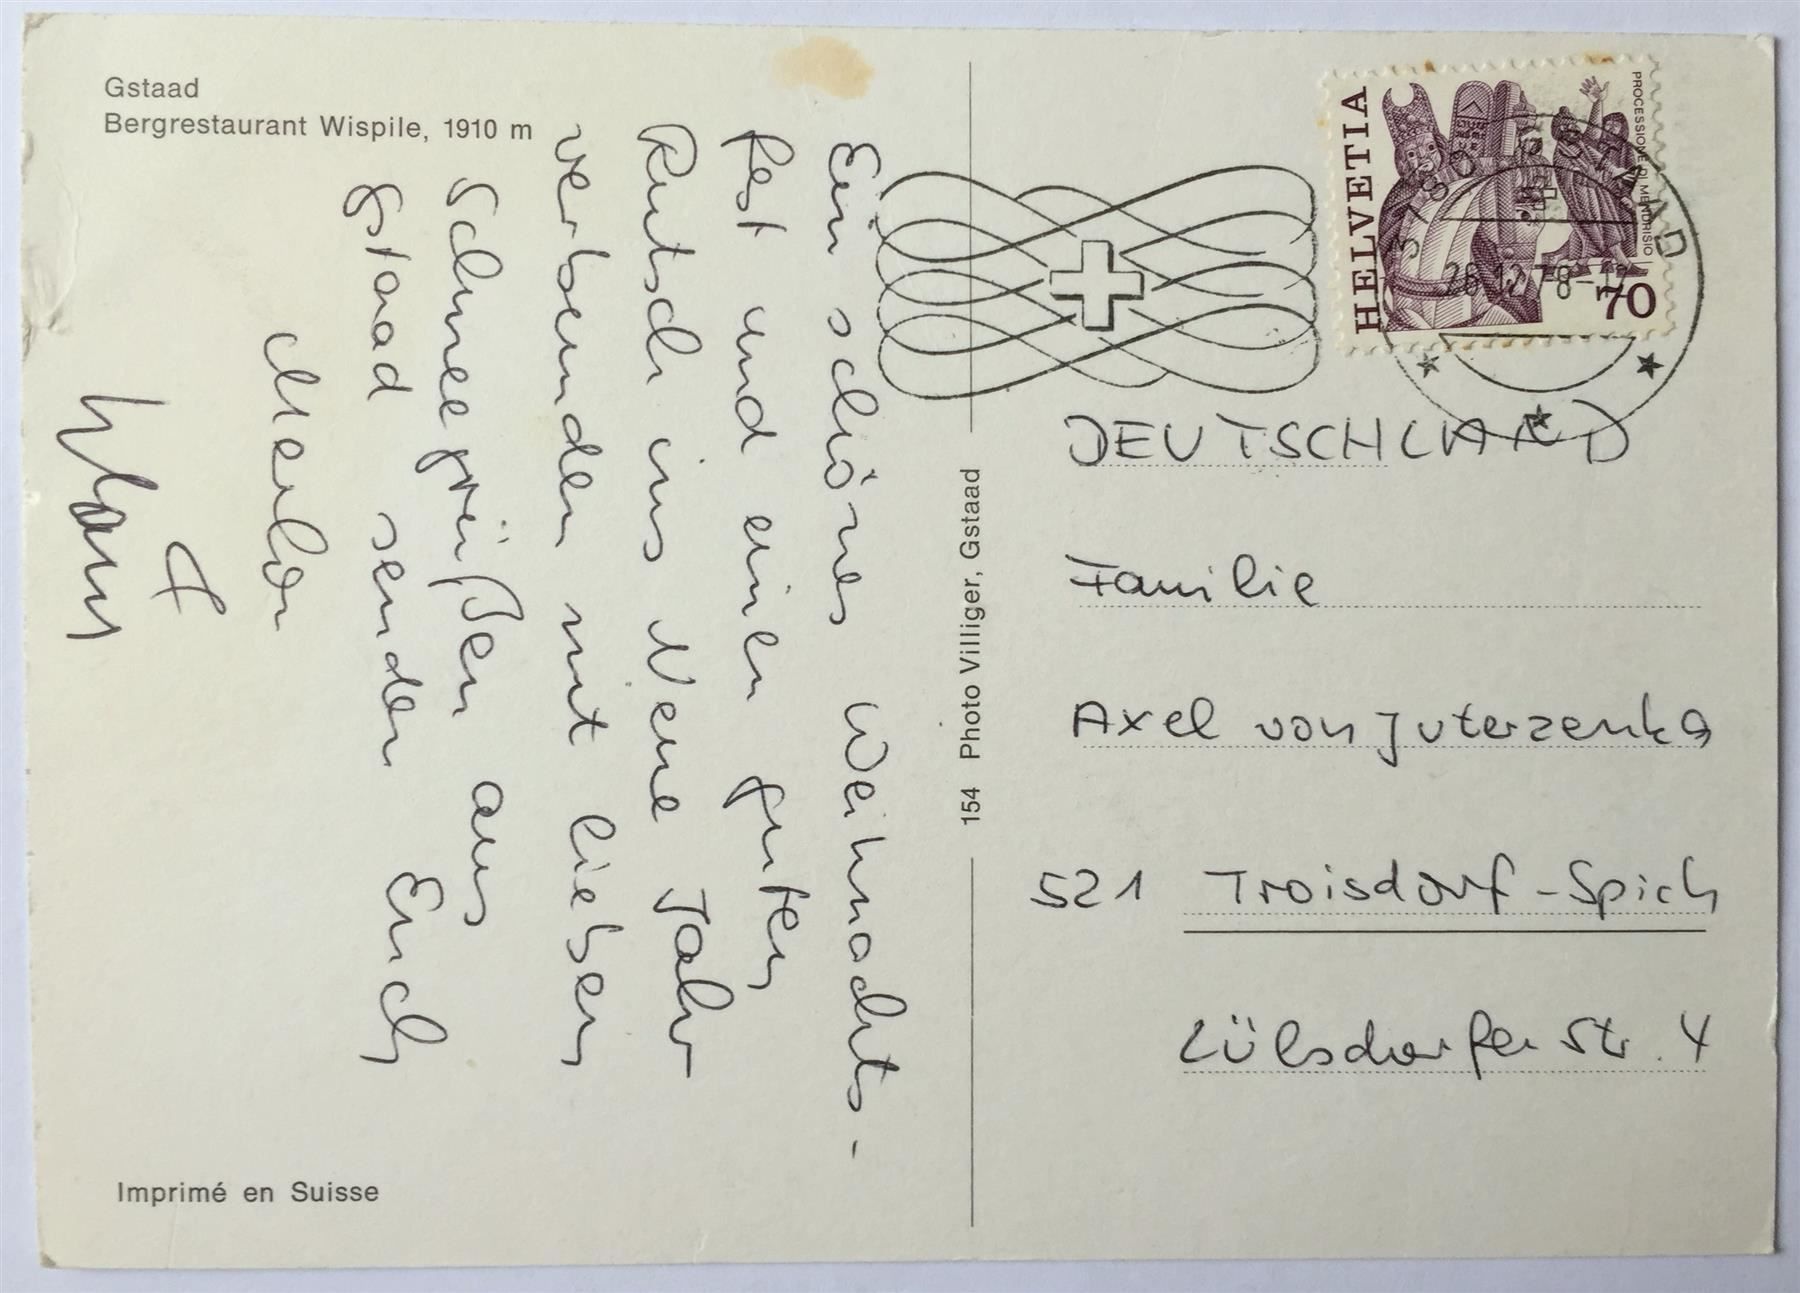 Gstaad
Bergrestaurant Wispile, 1910 m
Ein schönes Weihnachts-
fest und einen guten
Rutsch ins Neue Jahr
verbunden mit lieben
Schneegrüßen aus
Gstaad senden Euch
+
Klaus
154 Photo Villiger, Gstaad
Imprimé en Suisse
HELVETIA
PROCESSIONE DI MENDRISIO
70
GSTAAD
26.12.78-17
DEUTSCHLAND
Familie
Axel von Juterzenka
521 Troisdorf-Spich
Lülsdorfer Str. 4